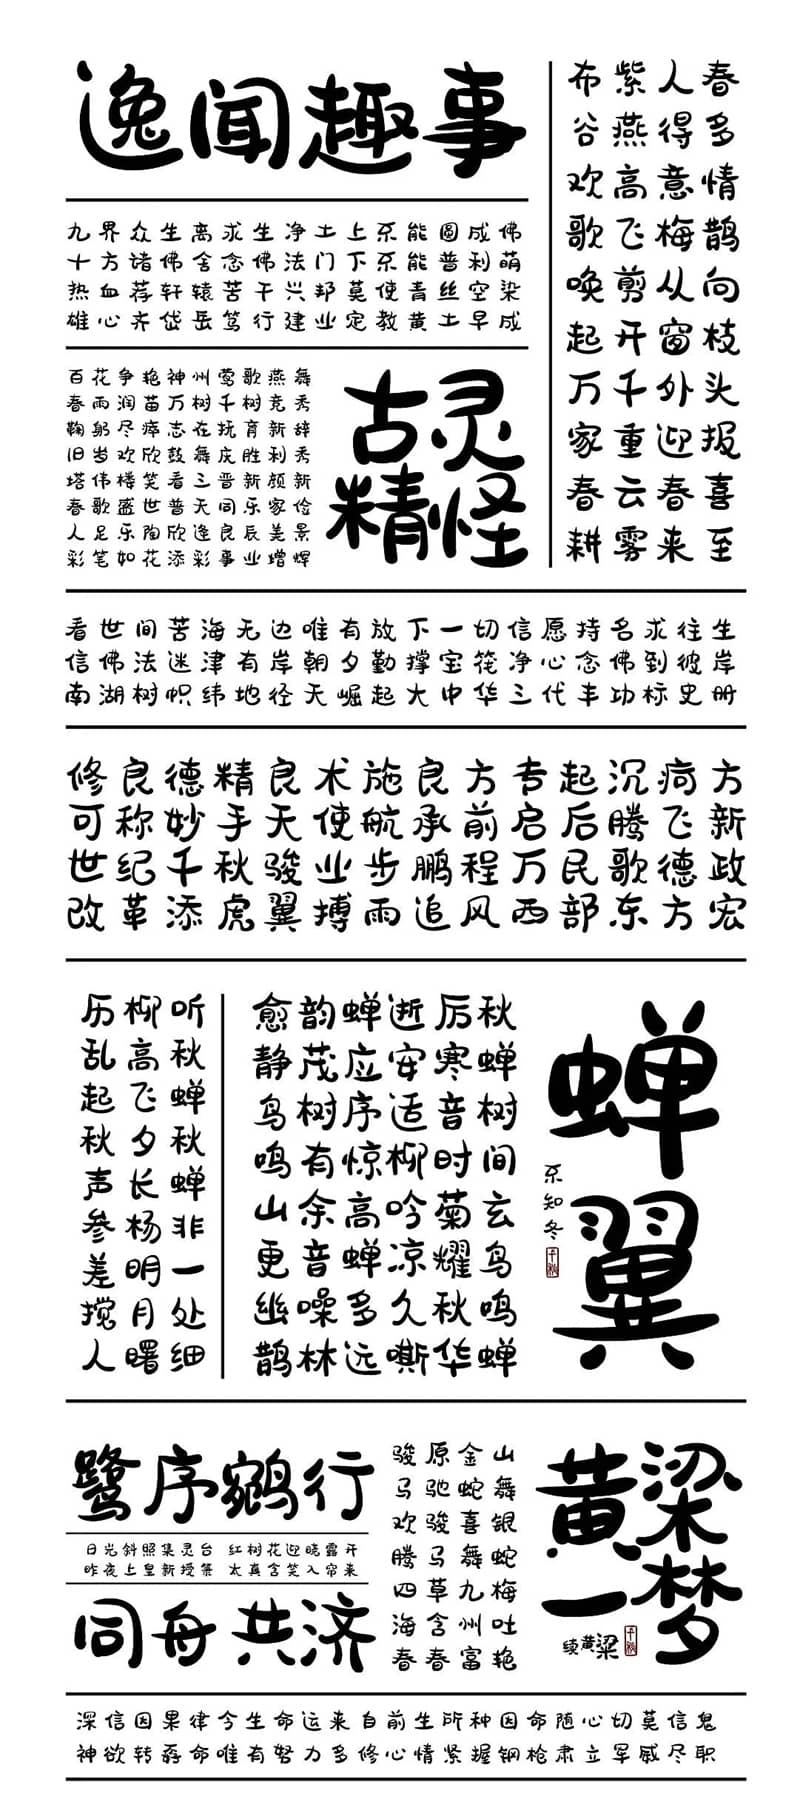 逸闻趣事
九界众生离求生净土上不能圆成佛
十方诸佛舍念佛法门下不能普利萌
热血荐轩辕苦干兴邦莫使青丝空染
雄心齐岱岳笃行建业定教黄土早成
百花争艳神州莺歌燕舞
春雨润苗万树千树竞秀
鞠躬尽瘁志在抚育新辞
旧岁欢欣鼓舞庆胜利秀
塔伟楼笑看三晋新颜新
春歌盛世普天同乐家俭
人足乐陶欣逢良辰美景
彩笔如花添彩事业增辉
古灵
精怪
春多情鹊向枝头报喜至
人得意梅从窗外迎春来
紫燕高飞剪开千重云雾
布谷欢歌唤起万家春耕
看世间苦海无边唯有放下一切信愿持名求往生
信佛法迷津有岸朝夕勤撑宝筏净心念佛到彼岸
南湖树帜纬地经天崛起大中华三代丰功标史册
修良德精良术施良方专起沉疴方
可称妙手天使航承前启后腾飞新
世纪千秋骏业步鹏程万民歌德政
改革添虎翼搏雨追风西部东方宏
听秋蝉秋蝉非一处细
柳高飞夕长杨明月曙
历乱起秋声参差搅人
秋蝉树间玄鸟鸣蝉
厉寒音时菊耀秋华
逝安适柳吟凉久嘶
蝉应序惊高蝉多远
韵茂树有余音噪林
愈静鸟鸣山更幽鹊
蝉翼
不知冬
千秋
鹭序鹓行
日光斜照集灵台 红树花迎晓露开
昨夜上皇新授箓 太真含笑入帘来
同舟共济
山舞银蛇梅吐艳
金蛇喜舞九州富
原驰骏马草含春
骏马欢腾四海春
黄粱
一梦
续黄粱
千秋
深信因果律今生命运来自前生所种因命随心切莫信鬼
神欲转孬命唯有努力多修心情紧握钢枪肃立军威尽职